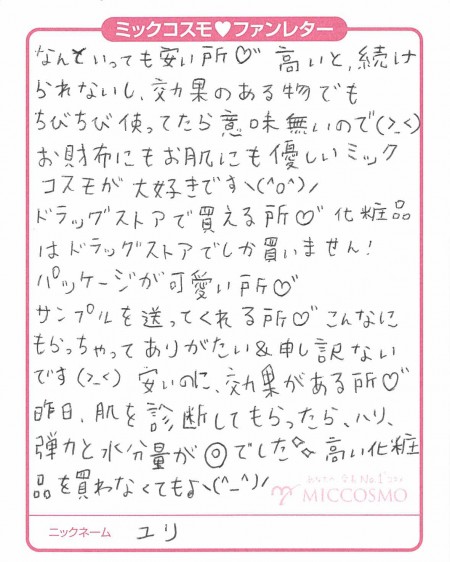 ミックコスモ♥ファンレター
なんといっても安い所♡ 高いと、続け
られないし、効果のある物でも
ちびちび使ってたら意味無いので(>_<)
お財布にもお肌にも優しいミック
コスモが大好きです\(^o^)/
ドラッグストアで買える所♡ 化粧品
はドラッグストアでしか買いません!
パッケージが可愛い所♡
サンプルを送ってくれる所♡ こんなに
もらっちゃってありがたい&申し訳ない
です(>_<) 安いのに、効果がある所♡
昨日、肌を診断してもらったら、ハリ、
弾力と水分量が◎でした 高い化粧
品を買わなくても♪\(^_^)/
MICCOSMO
ニックネーム ユリ